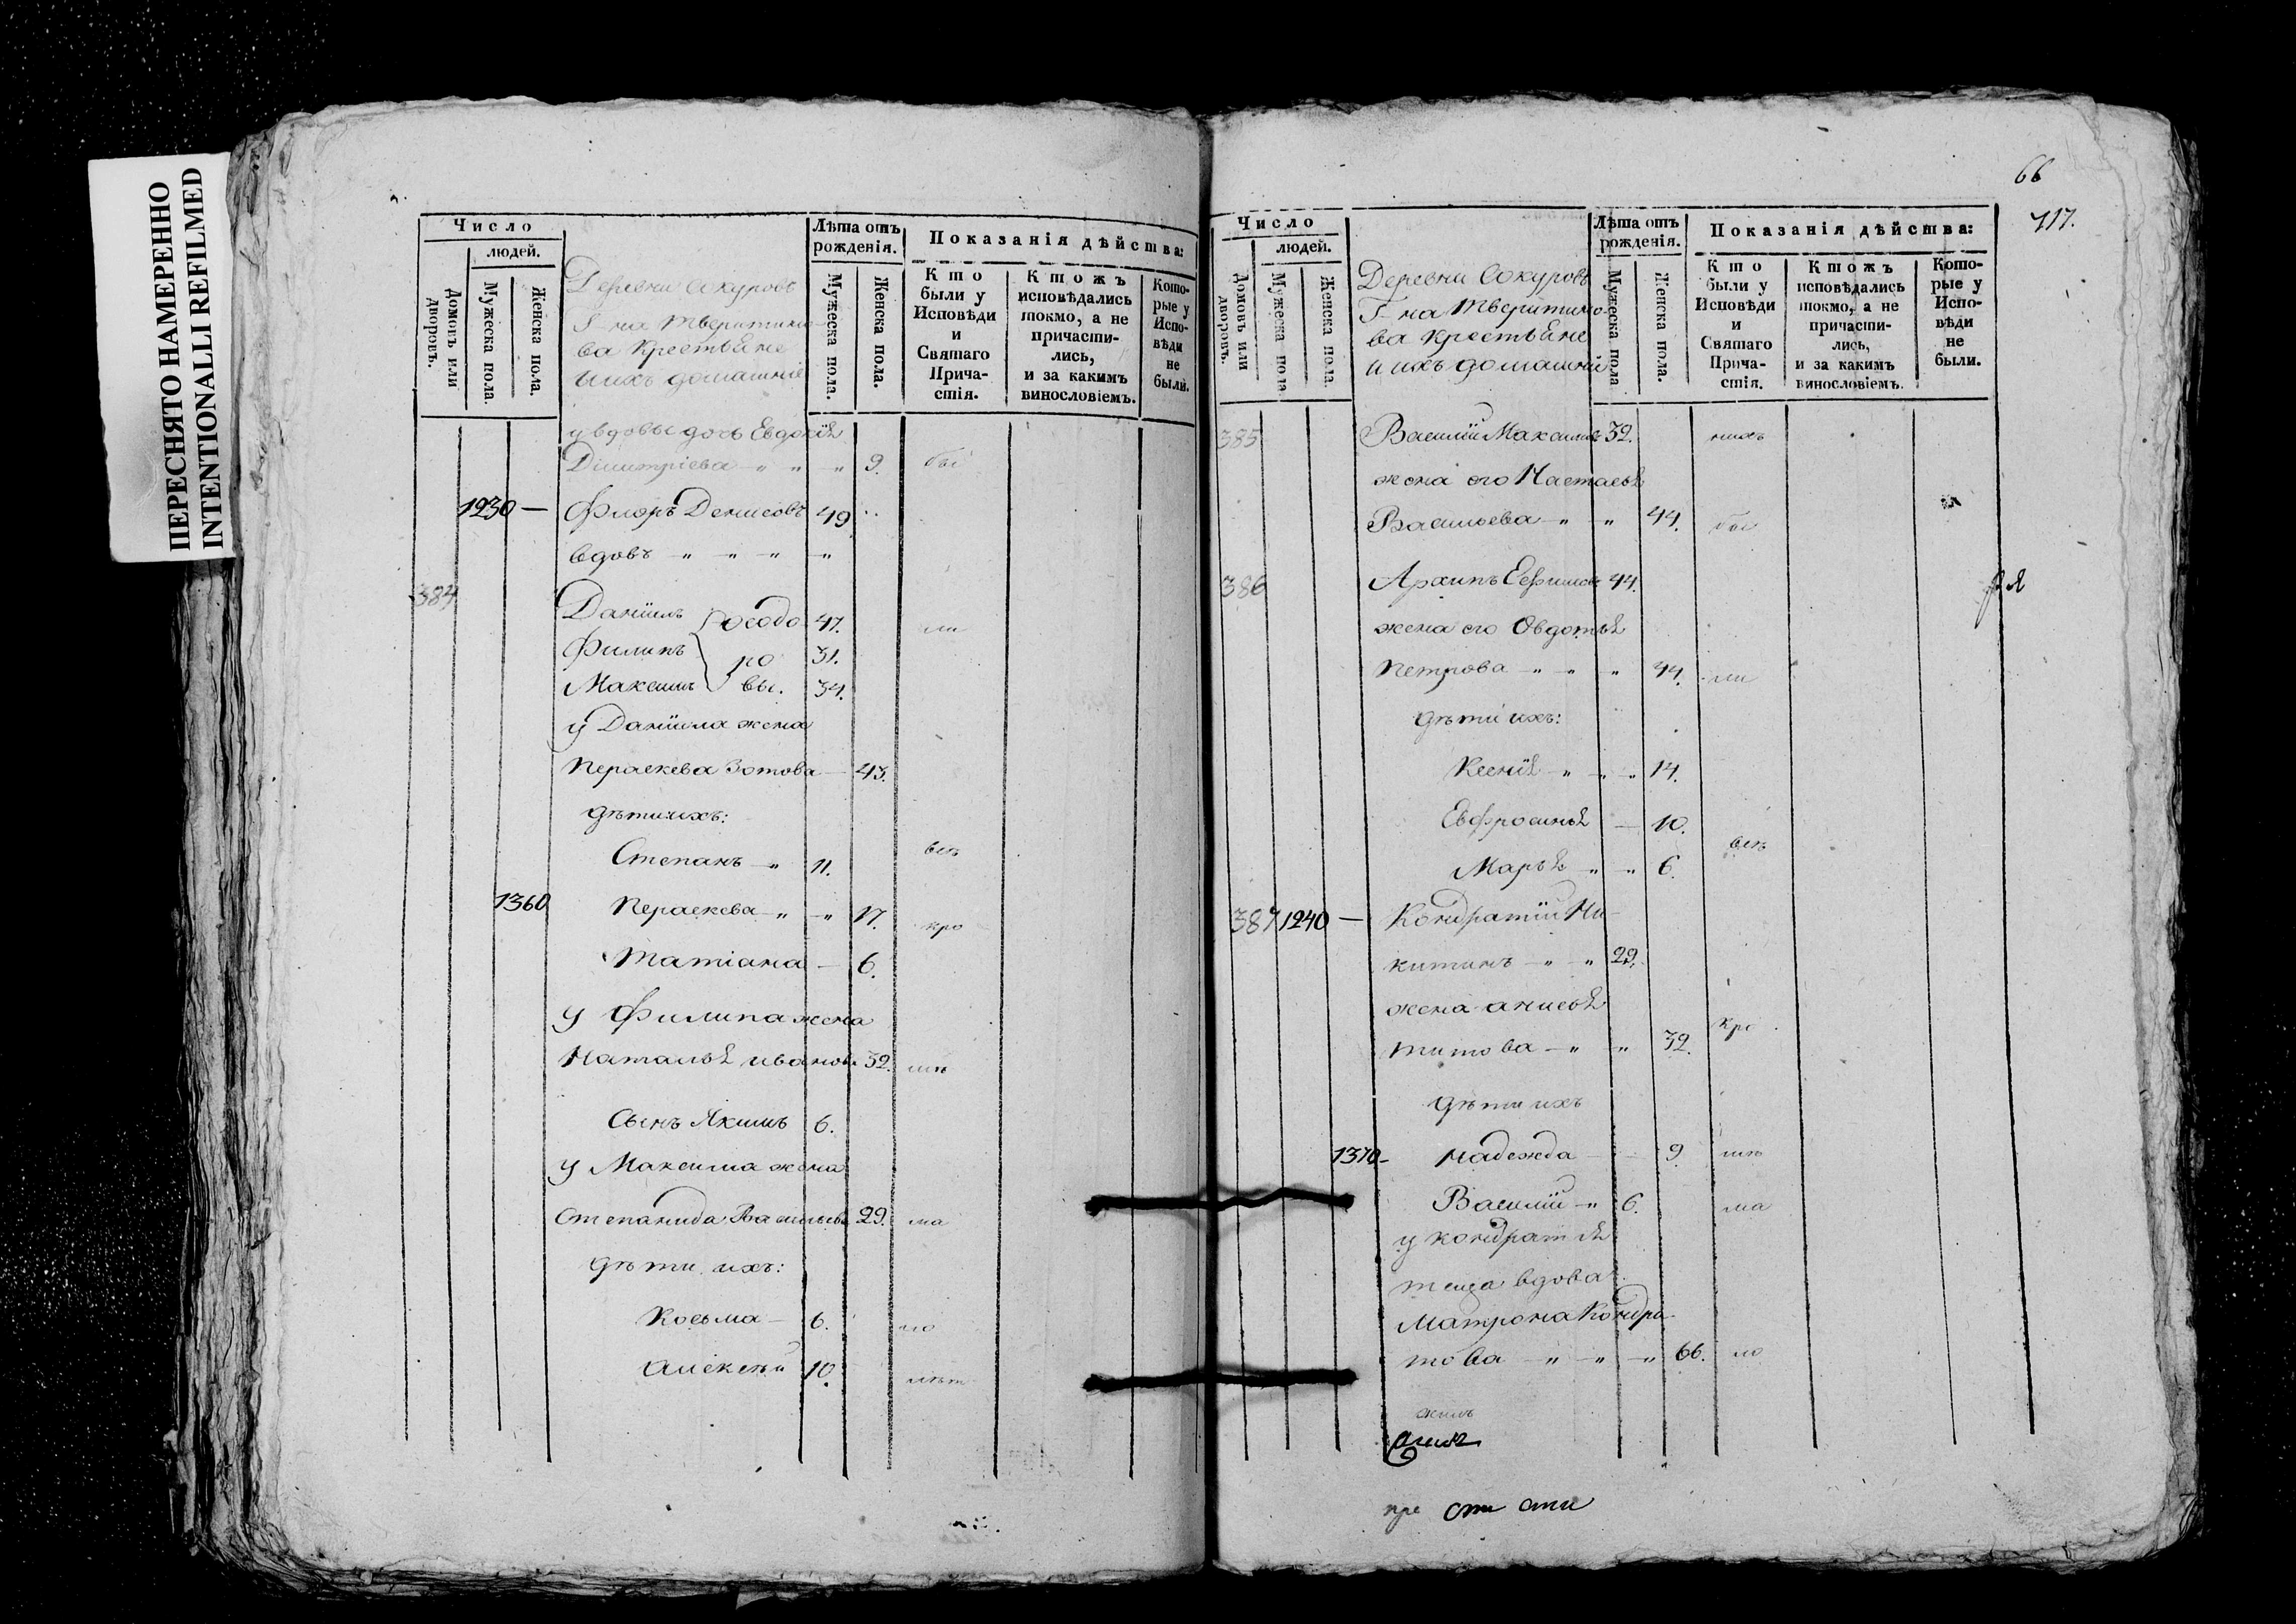 ПЕРЕСНЯТО НАМЕРЕННО
INTENTIONALLI REFILMED
Число
людей.
Домовъ или дворовъ.
Мужеска пола.
Женска пола.
Деревни Сокуровъ
Г-на Тверитино-
ва Крестьяне
и ихъ домашніе
Лѣта отъ рожденія.
Мужеска пола.
Женска пола.
Показанія дѣйства:
Кто были у Исповѣди и Святаго Причастія.
Ктожъ исповѣдались токмо, а не причастились, и за какимъ винословіемъ.
Которые у Исповѣди не были.
у вдовы дочь Евдокія
Димитріева - " - " 9. бы
1230 — Флоръ Денисовъ 49
вдовъ " " " "
384 Даніилъ } Ѳеодо 47. ли
Филипъ } ро 31.
Максимъ } вы. 34.
у Даніила жена
Пераскева Зотова — 43.
дѣти ихъ:
Степанъ - " 11. всѣ
1360 Пераскева - " - " 17. кро
Татіана — 6.
у Филипа жена
Наталья Иванов. 32. мѣ
Сынъ Якимъ 6.
у Максима жена
Степанида Васильев. 29. ма
дѣти ихъ:
Косьма — 6. ло
Алексѣй 10. лѣт
66
717.
Число
людей.
Домовъ или дворовъ.
Мужеска пола
Женска пола.
Деревни Сокуровъ
Г-на Тверитино-
ва Крестьяне
и ихъ домашніе
Лѣта отъ рожденія.
Мужеска пола
Женска пола.
Показанія дѣйства:
Кто были у Исповѣди и Святаго Причастія.
Ктожъ исповѣдались токмо, а не причастились, и за какимъ винословіемъ.
Которые у Исповѣди не были.
385 Василій Максимов 32. нихъ
жена его Настасья
Васильева - " " 44. бы
386 Архипъ Ефимов 44.
жена его Овдотья
Петрова - " - " " 44. ли
дѣти ихъ:
Ксенія - " - " - " 14.
Евфросинья — 10. всѣ
Марья - " - " 6.
387 1240 — Кондратій Ни-
китинъ - " - " 29.
жена Анисья кро
Титова - " - " 32.
дѣти ихъ
1370 - Надежда — 9. мѣ
Василій - " 6. ма
у Кондратія
теща вдова
Матрона Кондра-
това - " - " - " 66. ло